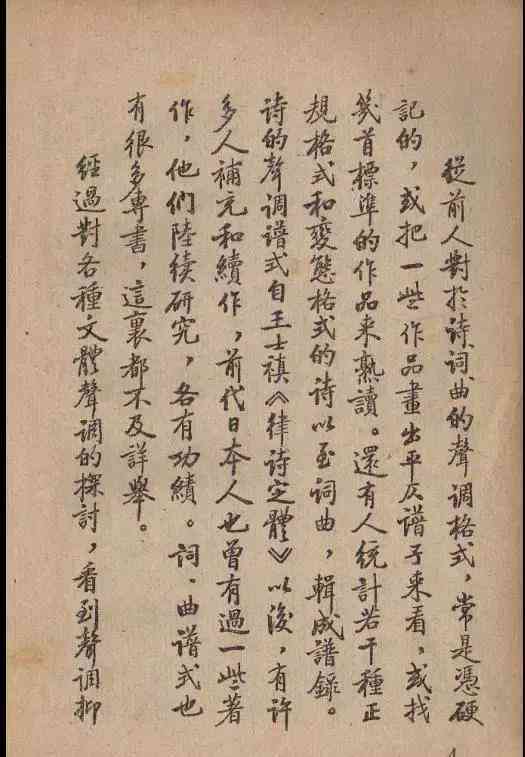 從前人對於诗、词、曲的聲调格式，常是憑硬
記的，或把一些作品畫出平仄谱子来看，或找
幾首標準的作品来熟讀。還有人统計若干種正
規格式和變態格式的诗以至词曲，輯成譜錄。
诗的聲调谱式自王士禛《律诗定體》以後，有許
多人補充和續作，前代日本人也曾有過一些著
作，他们陸续研究，各有功績。词、曲谱式也
有很多專書，這裏都不及詳舉。
經過對各種文體聲调的探討，看到聲调抑